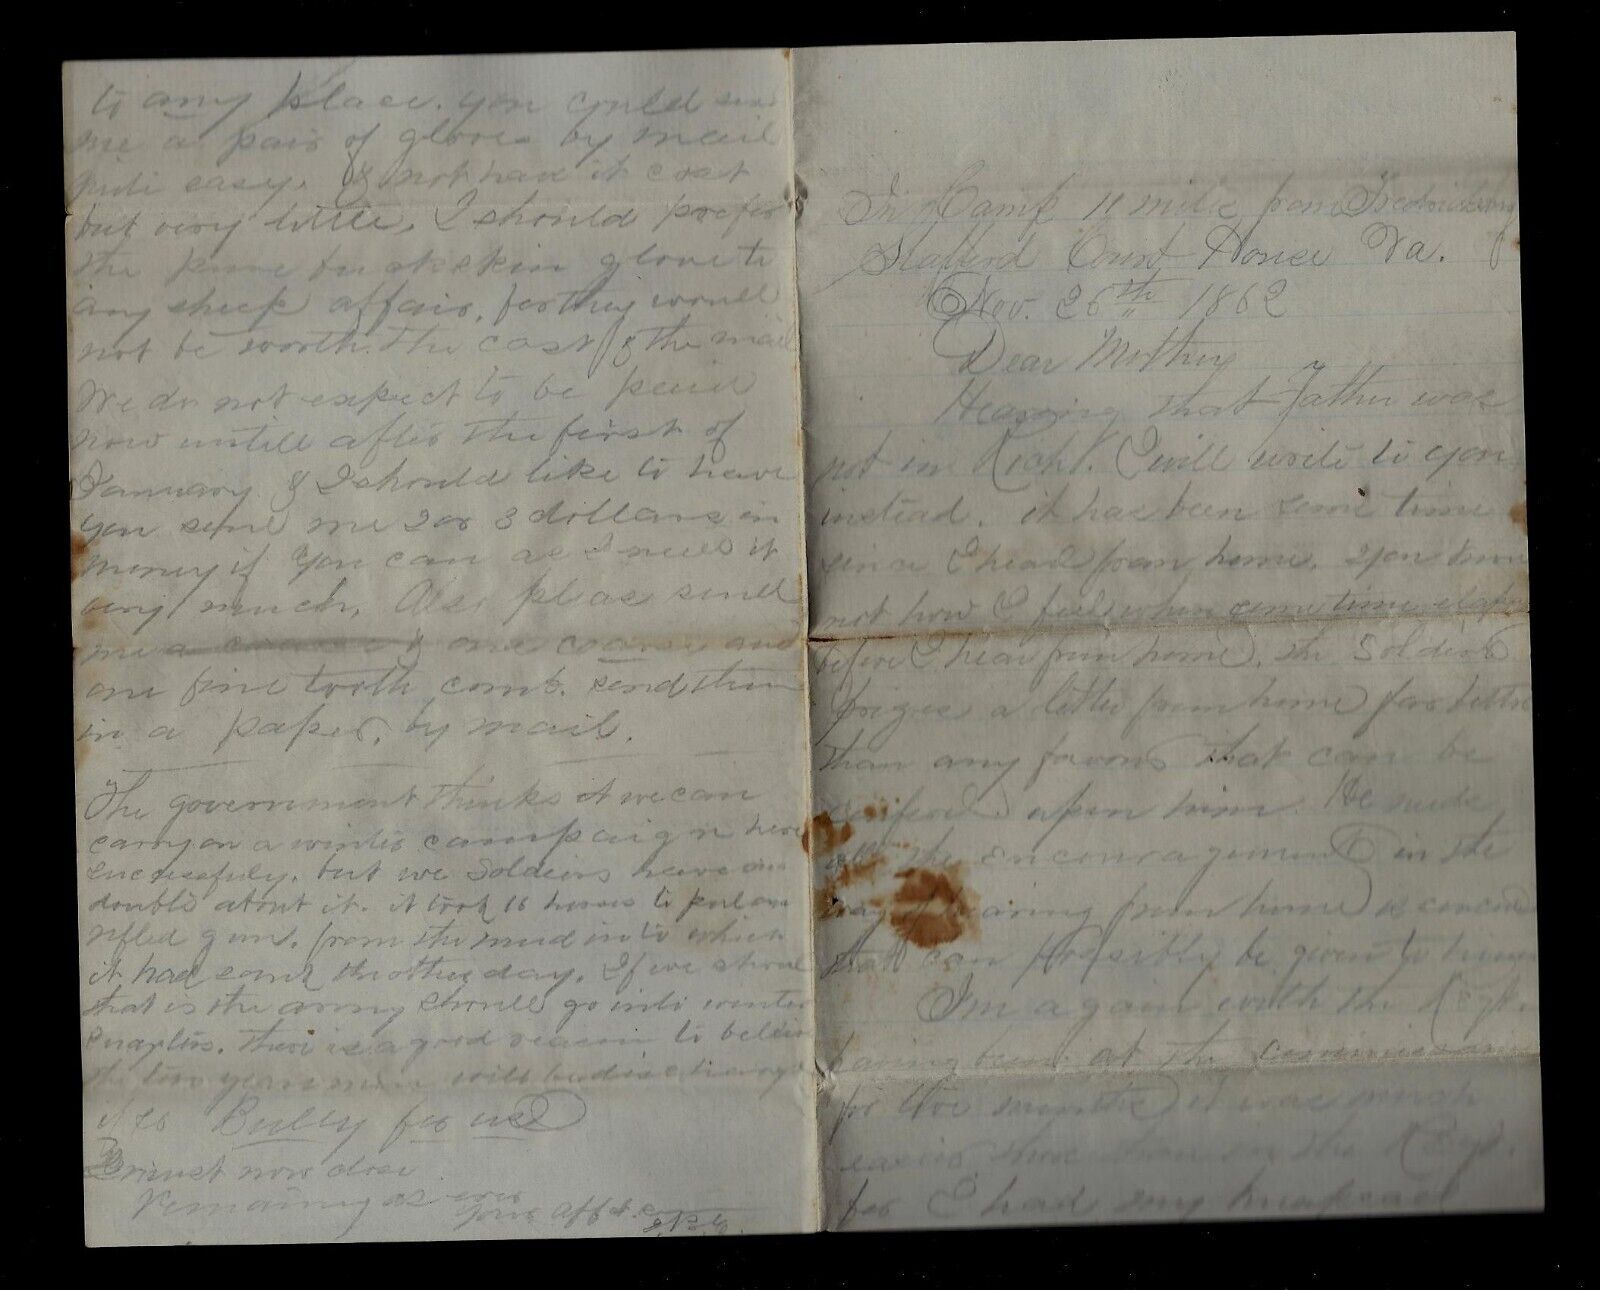 In Camp 11 mile from Fredricksburg
Stafford Court House Va.
Nov. 26th 1862
Dear Mother
Hearing that Father was
not in Roch't. I will write to you
instead. it has been some time
since I head from home. you know
not how I feel when some time elapse
before I hear from home. the Soldier
prizes a letter from home far better
than any favors that can be
confered upon him. He needs
all the encouragement in the
way of hearing from home
that can possibly be given to him
I'm again with the Regt.
having been at the
for two months it was much
easier there than in the Regt.
for I had my
to any place. you could send
me a pair of gloves by mail
quite easy. & not have it cost
but very little, I should prefer
the pure buckskin glove to
any sheep affair, for they would
not be worth the cost of the mail
We do not expect to be paid
now untill after the first of
January & I should like to have
you send me 2 or 3 dollars in
money if you can as I need it
very much. Also pleas send
me one coarse and
one fine tooth comb. send them
in a paper, by mail.
The government thinks it we can
carry on a winter campaign here
sucessfuly. but we Soldiers have our
doubts about it. it took 16 horses to pul one
rifled gun. from the mud into which
it had sank the other day. If we should
that is the army should go into winter
quarters. there is a good reason to believe
the two years men will be discharged
it is Bully for us
I must now close
Remaining as ever
Your aff. son